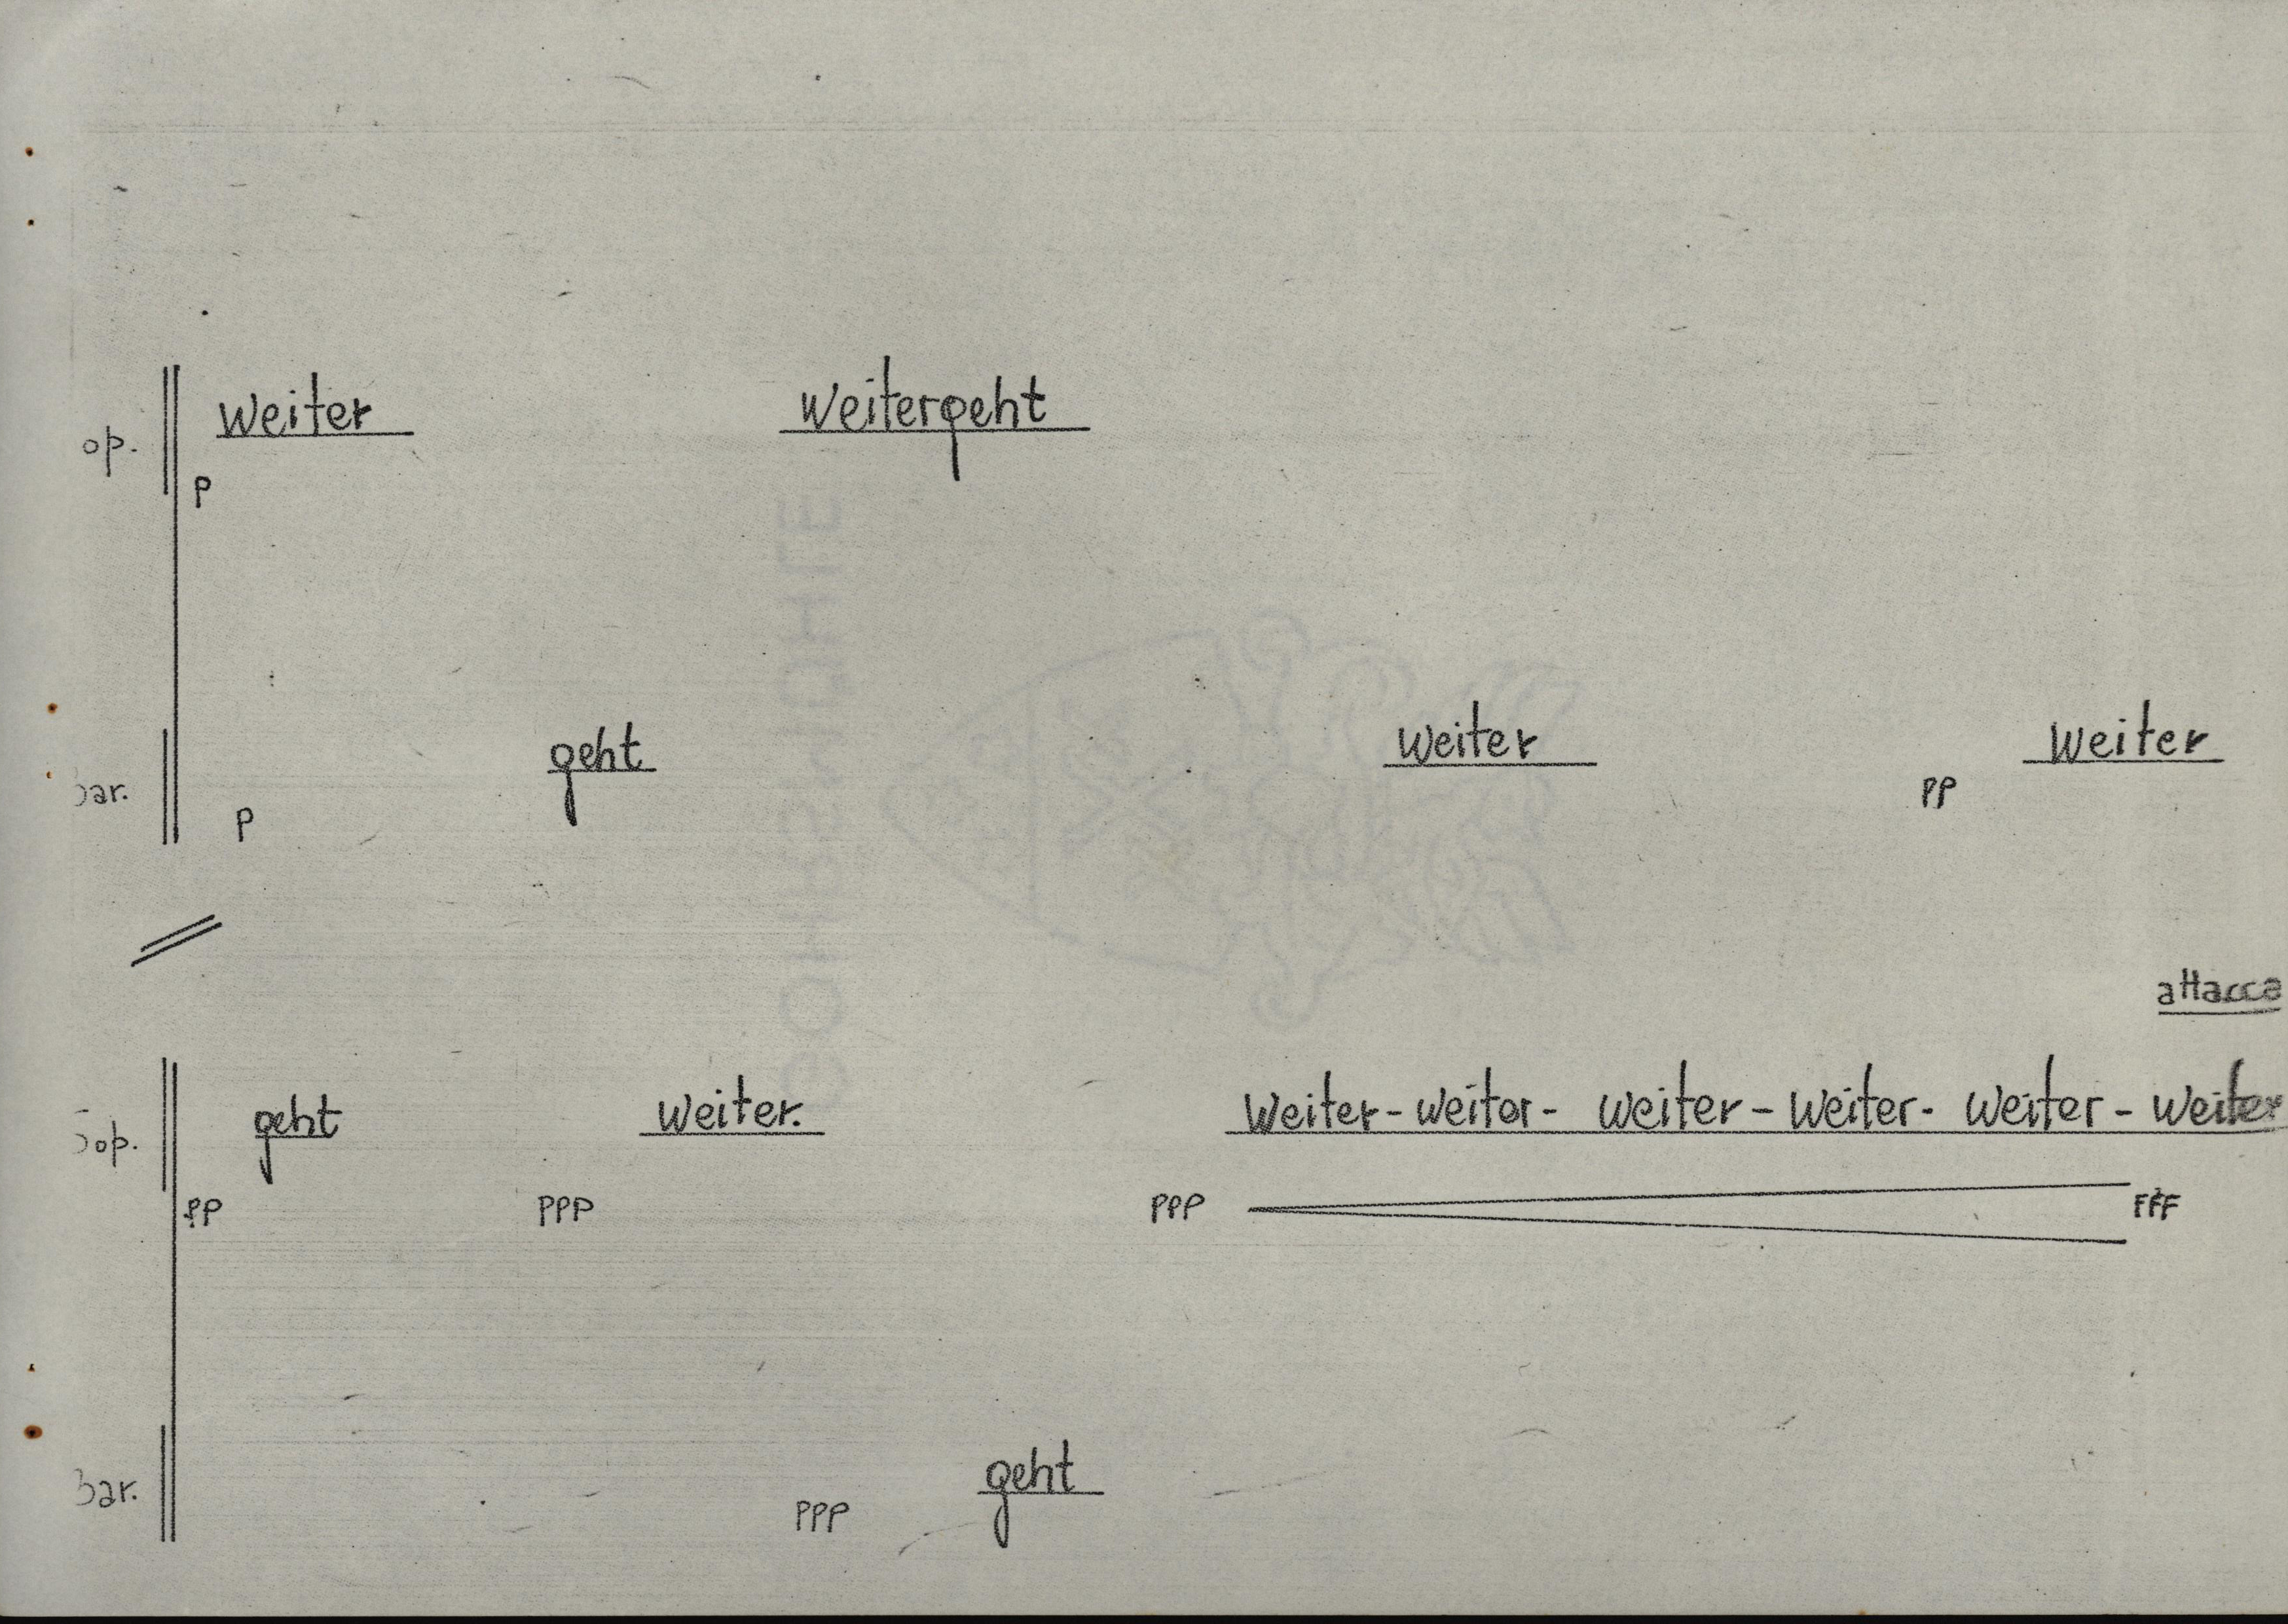 weiter weitergeht
op.
p
geht weiter weiter
bar. p pp
attacca
geht weiter. weiter- weiter- weiter- weiter- weiter- weiter
Sop.
pp ppp ppp fff
geht
bar. ppp